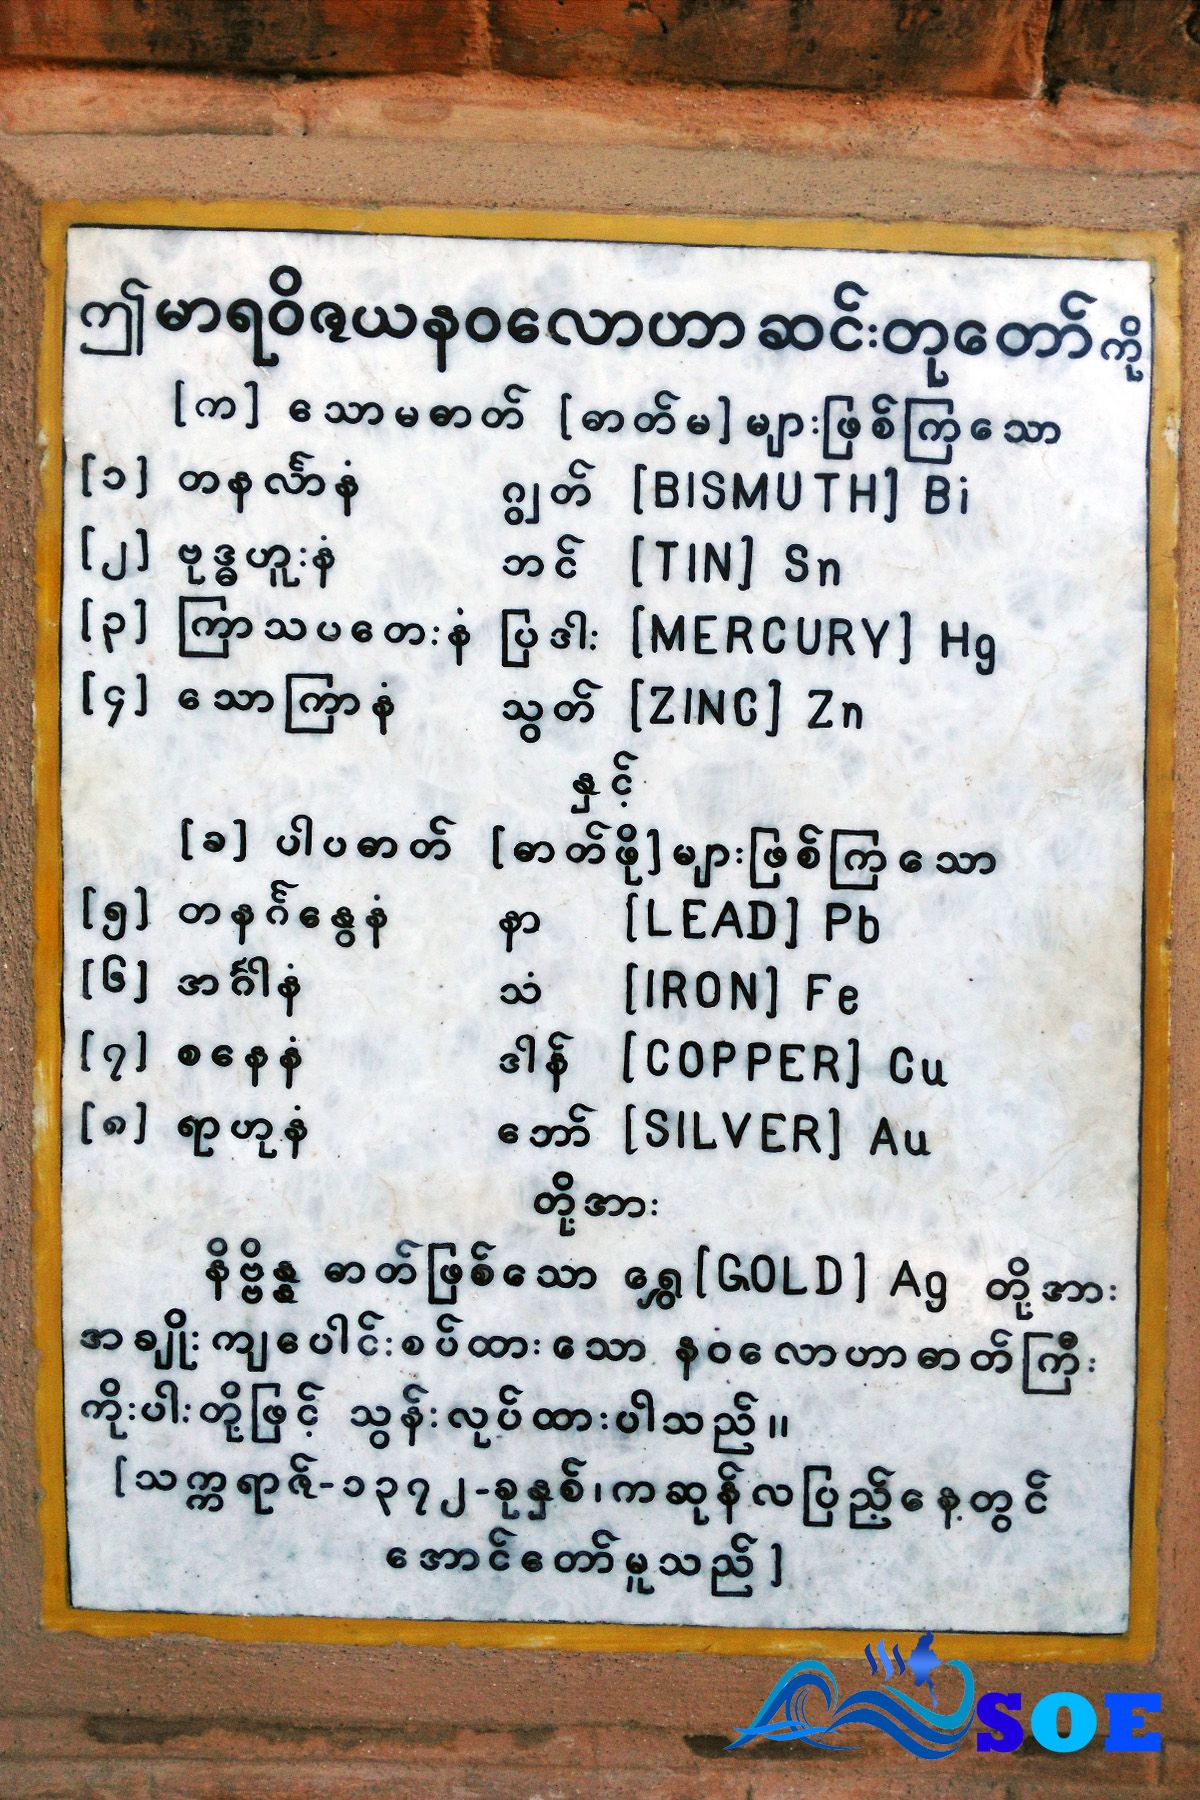 ဤမာရဝိဇယနဝလောဟာဆင်းတုတော်ကို
[က] သောမဓာတ် [ဓာတ်မ]များဖြစ်ကြသော
[၁] တနင်္လာနံ ဂျွတ် [BISMUTH] Bi
[၂] ဗုဒ္ဓဟူးနံ ဘင် [TIN] Sn
[၃] ကြာသပတေးနံ ပြဒါး [MERCURY] Hg
[၄] သောကြာနံ သွတ် [ZINC] Zn
နှင့်
[ခ] ပါပဓာတ် [ဓာတ်ဖို]များဖြစ်ကြသော
[၅] တနင်္ဂနွေနံ နာ [LEAD] Pb
[၆] အင်္ဂါနံ သံ [IRON] Fe
[၇] စနေနံ ဒါန် [COPPER] Cu
[၈] ရာဟုနံ ဘော် [SILVER] Au
တို့အား
နိဗ္ဗိန္ဓ ဓာတ်ဖြစ်သော ရွှေ [GOLD] Ag တို့အား
အချိုးကျပေါင်းစပ်ထားသော နဝလောဟာဓာတ်ကြီး
ကိုးပါးတို့ဖြင့် သွန်းလုပ်ထားပါသည်။
[သက္ကရာဇ်-၁၃၇၂-ခုနှစ်၊ကဆုန်လပြည့်နေ့တွင်
အောင်တော်မူသည်]
SOE